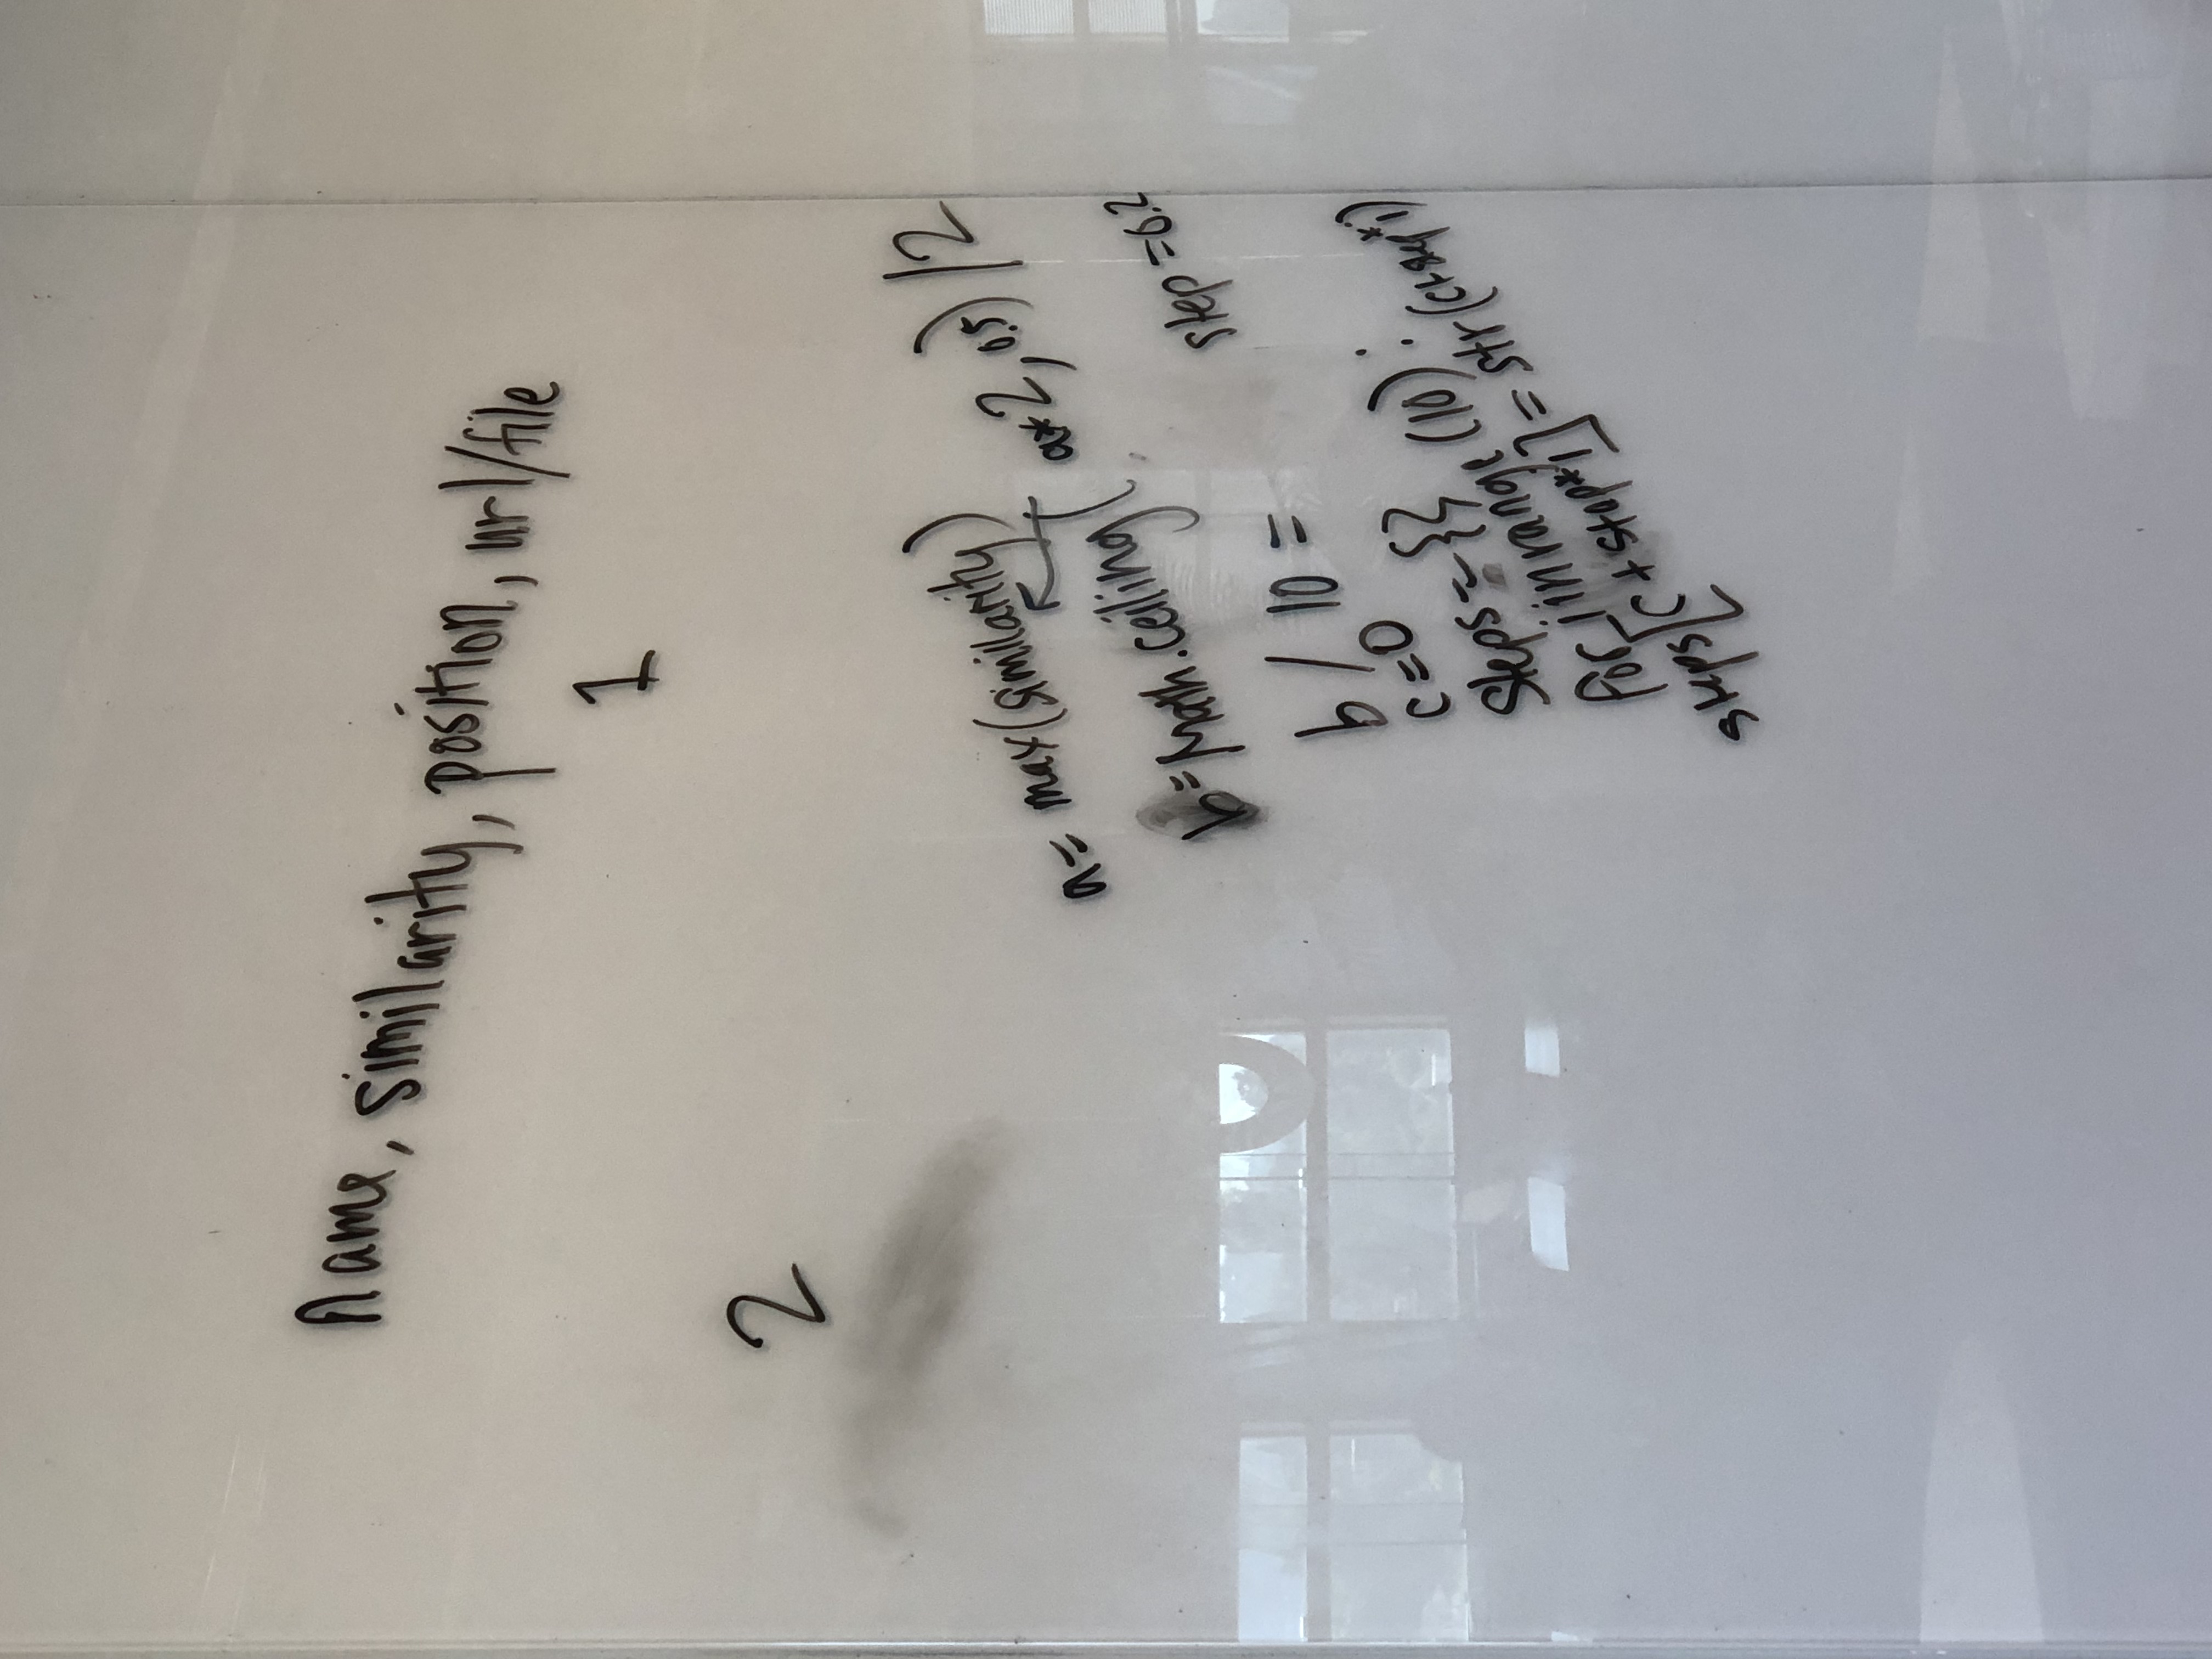 name, similarity, position, url/file
1
2
a= max(similarity)
b=Math.ceiling( a*2, 0.5) /2
step=0.2
b / 10 =
c=0
Steps={}
for i in range (10):
steps[c + step*i] = str(c+step*i)